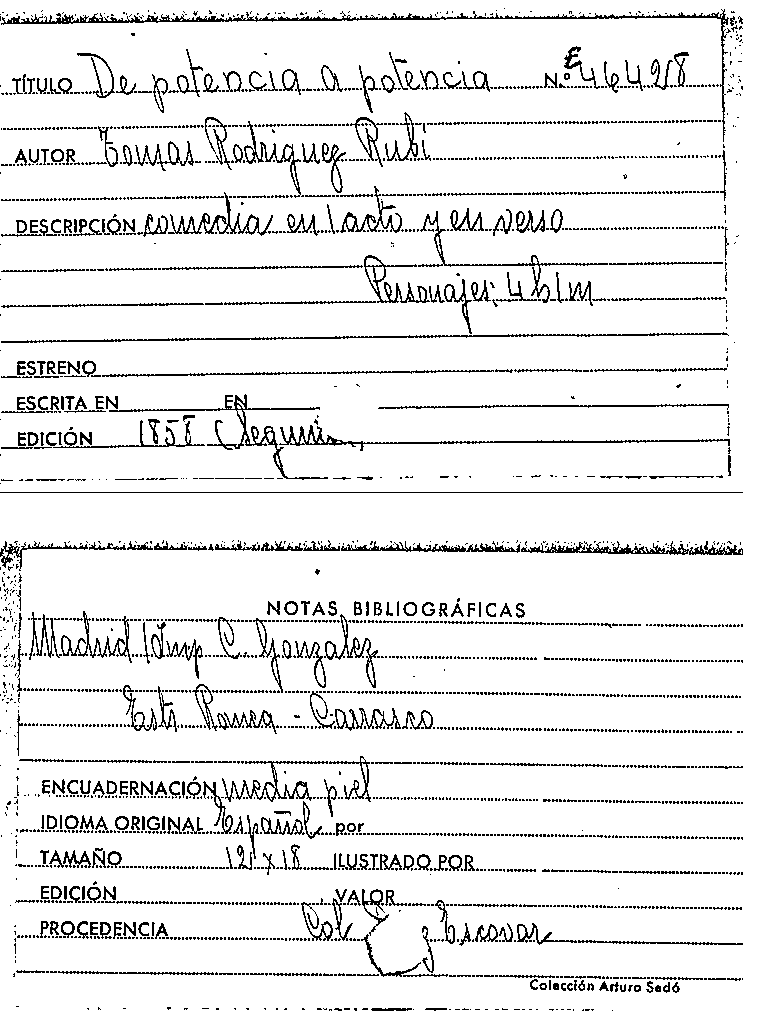 TÍTULO De potencia a potencia N.º E 46428
AUTOR Tomas Rodriguez Rubi
DESCRIPCIÓN comedia en 1 acto y en verso
Personajes: 4 h 1 m
ESTRENO
ESCRITA EN EN
EDICIÓN 1858 (Segunda
NOTAS BIBLIOGRÁFICAS
Madrid Imp C. Gonzalez
Estr Roura - Carrasco
ENCUADERNACIÓN media piel
IDIOMA ORIGINAL Español por
TAMAÑO 12 x 18 ILUSTRADO POR
EDICIÓN VALOR
PROCEDENCIA Col Escovar
Colección Arturo Sedó